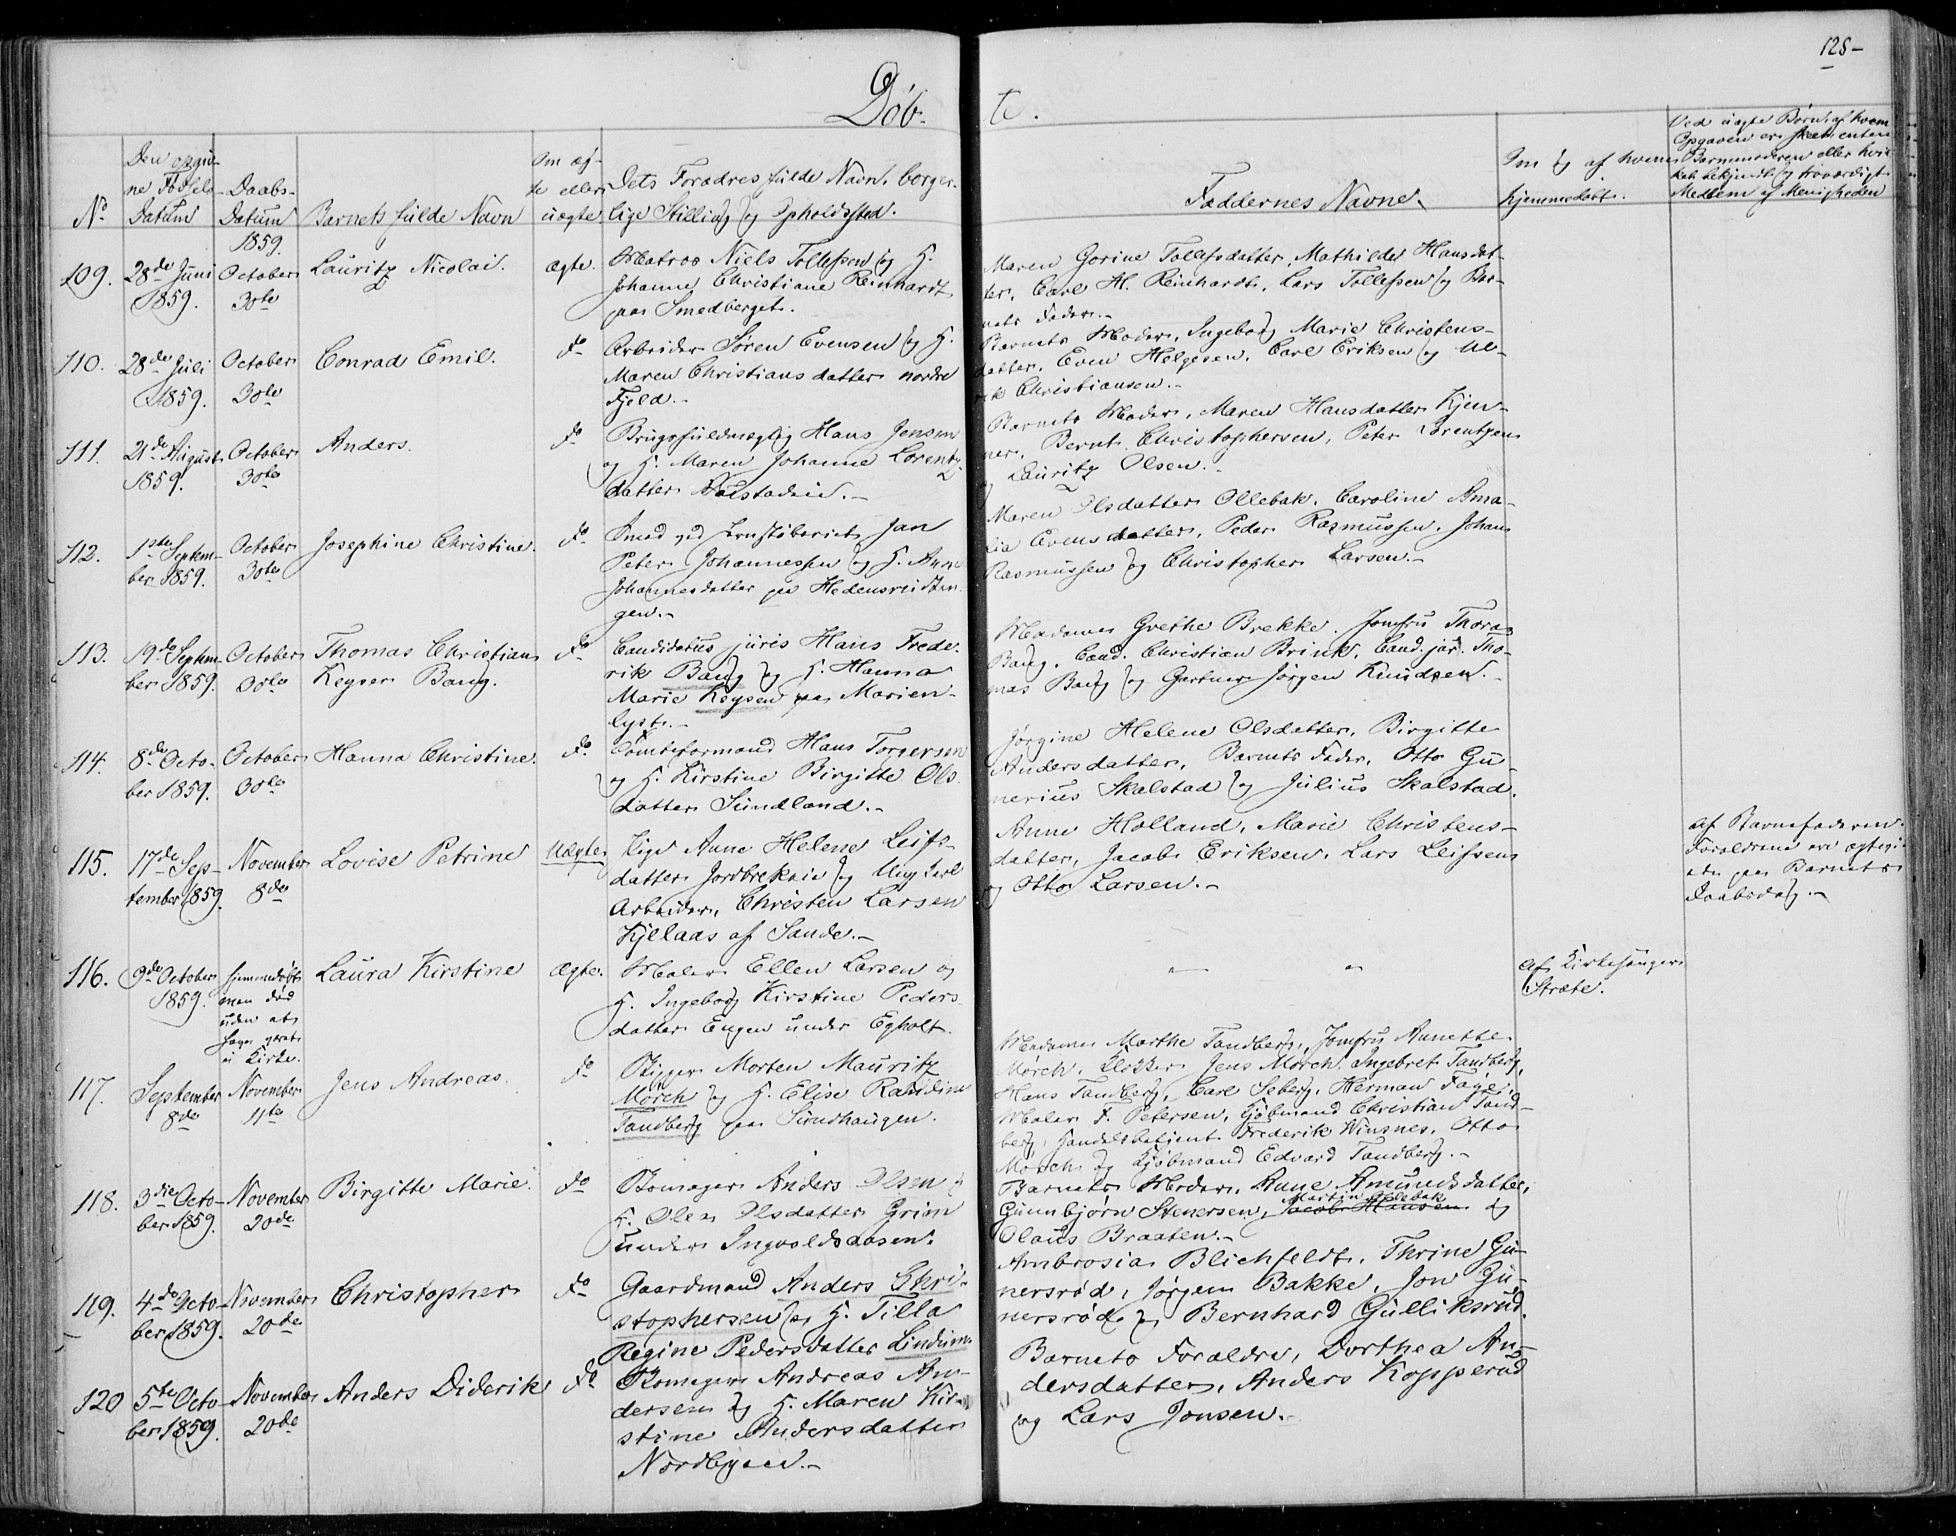 125-
Døb-
te.
No
Den opgiv-
ne Fødsels-
Datum
Daabs-
Datum
1859.
Barnets fulde Navn
Om æg-
te eller
uægte.
Dets Forældres fulde Navn, borger-
lige Stilling og Opholdssted.
Faddernes Navne.
Om og af hvem
hjemmedøbt.
Ved uægte Børn, af hvem
Opgaven er skeet, enten
Barnemoderen eller hvil-
ket bekjendt og troværdigt
Medlem af Menigheden
109.
28de Juni
1859.
October
30te
Lauritz Nicolai.
ægte.
Matros Niels Tollefsen og H.
Johanne Christiane Reinhardt
paa Smedberget.
Maren Gorine Tollefsdatter, Mathilde Hansdat-
ter, Carl H. Reinhardt, Lars Tollefsen og Bar-
nets Fader.-
110.
28de Juli
1859.
October
30te
Conrad Emil.
do
Arbeider Søren Evensen og H.
Maren Christiansdatter nordre
Fjeld.-
Barnets Moder, Ingeborg Marie Christens-
datter, Even Helgesen, Carl Eriksen og Ul-
rik Christiansen.-
111.
21de August
1859.
October
30te
Anders.
do
Brugsfuldmægtig Hans Jensen
og H. Maren Johanne Lorentz-
datter
Barnets Moder, Maren Hansdatter Kjen-
ner, Bernt Christophersen, Peter Lorentzen
og Lauritz Olsen.-
112.
1ste Septem-
ber 1859.
October
30te
Josephine Christine.
do
Smed ved Jernstøberiet Jan
Peter Johannessen og H. Anne
Johannesdatter paa
gen.-
Maren Olsdatter Ollebak, Caroline Ama-
lia Evensdatter, Peder Rasmussen, Johan
Rasmussen og Christopher Larsen.-
113.
19de Septem-
ber 1859.
October
30te
Thomas Christian
Keyser Bang.
do
Candidatus juris Hans Frede-
rik Bang og H. Hanna
Marie Keyser paa Marien-
lyst.-
Madame Grethe Brekke, Jomfru Thora
Bang, Cand. Christian Brink, Cand. jur. Tho-
mas Bang og Gartner Jørgen Knudsen.-
114.
8de Octo-
ber 1859.
October
30te
Hanna Christine.
do
Tomteformand Hans Torgersen
og H. Kirstine Birgitte Ols-
datter Sundland.-
Jørgine Helene Olsdatter, Birgitte
Andersdatter, Barnets Fader, Otto Gu-
nerius Skalstad og Julius Skalstad.
115.
17de Sep-
tember 1859.
November
8de
Lovise Petrine
Uægte
Pige Anne Helene Leifs-
datter Jordbrekkeie og Ungkarl
Arbeider, Christen Larsen
Kjelaas af Sande.-
Anne Holland, Marie Christens-
datter, Jacob Eriksen, Lars Leifsen
og Otto Larsen.-
af Barnefaderen.
Forældrene ere ægtevi-
ede paa Barnets
Daabsdag.-
116.
9de October
1859.
hjemmedøbt
men død
uden at
have været
i Kirke.
Laura Kirstine
ægte.
Maler Ellen Larsen og
H. Ingeborg Kirstine Peders-
datter Engen under Egholt.
" "
af Kirkesanger
Stræte.
117.
September
8de
November
11te
Jens Andreas.
do
Rigger Morten Mauritz
Mørch og H. Elise Randine
Tandberg paa Sundhaugen.
Madame Marthe Tandberg, Jomfru Annette
Mørch, Klokker Jens Mørch, Ingebret Tandberg,
Hans Tandberg, Carl Seberg, Herman Fage,
Maler F. Petersen, Kjøbmand Christian Tand-
berg, Handelsbetjent Frederik Winsnes, Otto
Mørch og Kjøbmand Edvard Tandberg.-
118.
3die Octo-
ber 1859.
November
20de
Birgitte Marie.
do
Skomager Anders Olsen og
H. Olea Olsdatter Grim
under Ingvoldsaasen.
Barnets Moder, Anne Amundsdatter,
Gunnbjørn Stenersen, Martin Ollebak Jacob Hansen og
Olaus Braaten.-
119.
4de Octo-
ber 1859.
November
20de
Christopher
do
Gaardmand Anders Chri-
stophersen og H. Tilla
Regine Pedersdatter Lindum
Ambrosia Blichfeldt, Thrine Gu-
nersrød, Jørgen Bakke, Jon Gu-
nersrød og Bernhard Gulliksrud.
120
5te Octo-
ber 1859.
November
20de
Anders Diderik
do
Skomager Andreas An-
dersen og H. Maren Kir-
stine Andersdatter
Nordbyeie.-
Barnets Forældre, Dorthea An-
dersdatter, Anders Kopperud
og Lars Jonsen.-